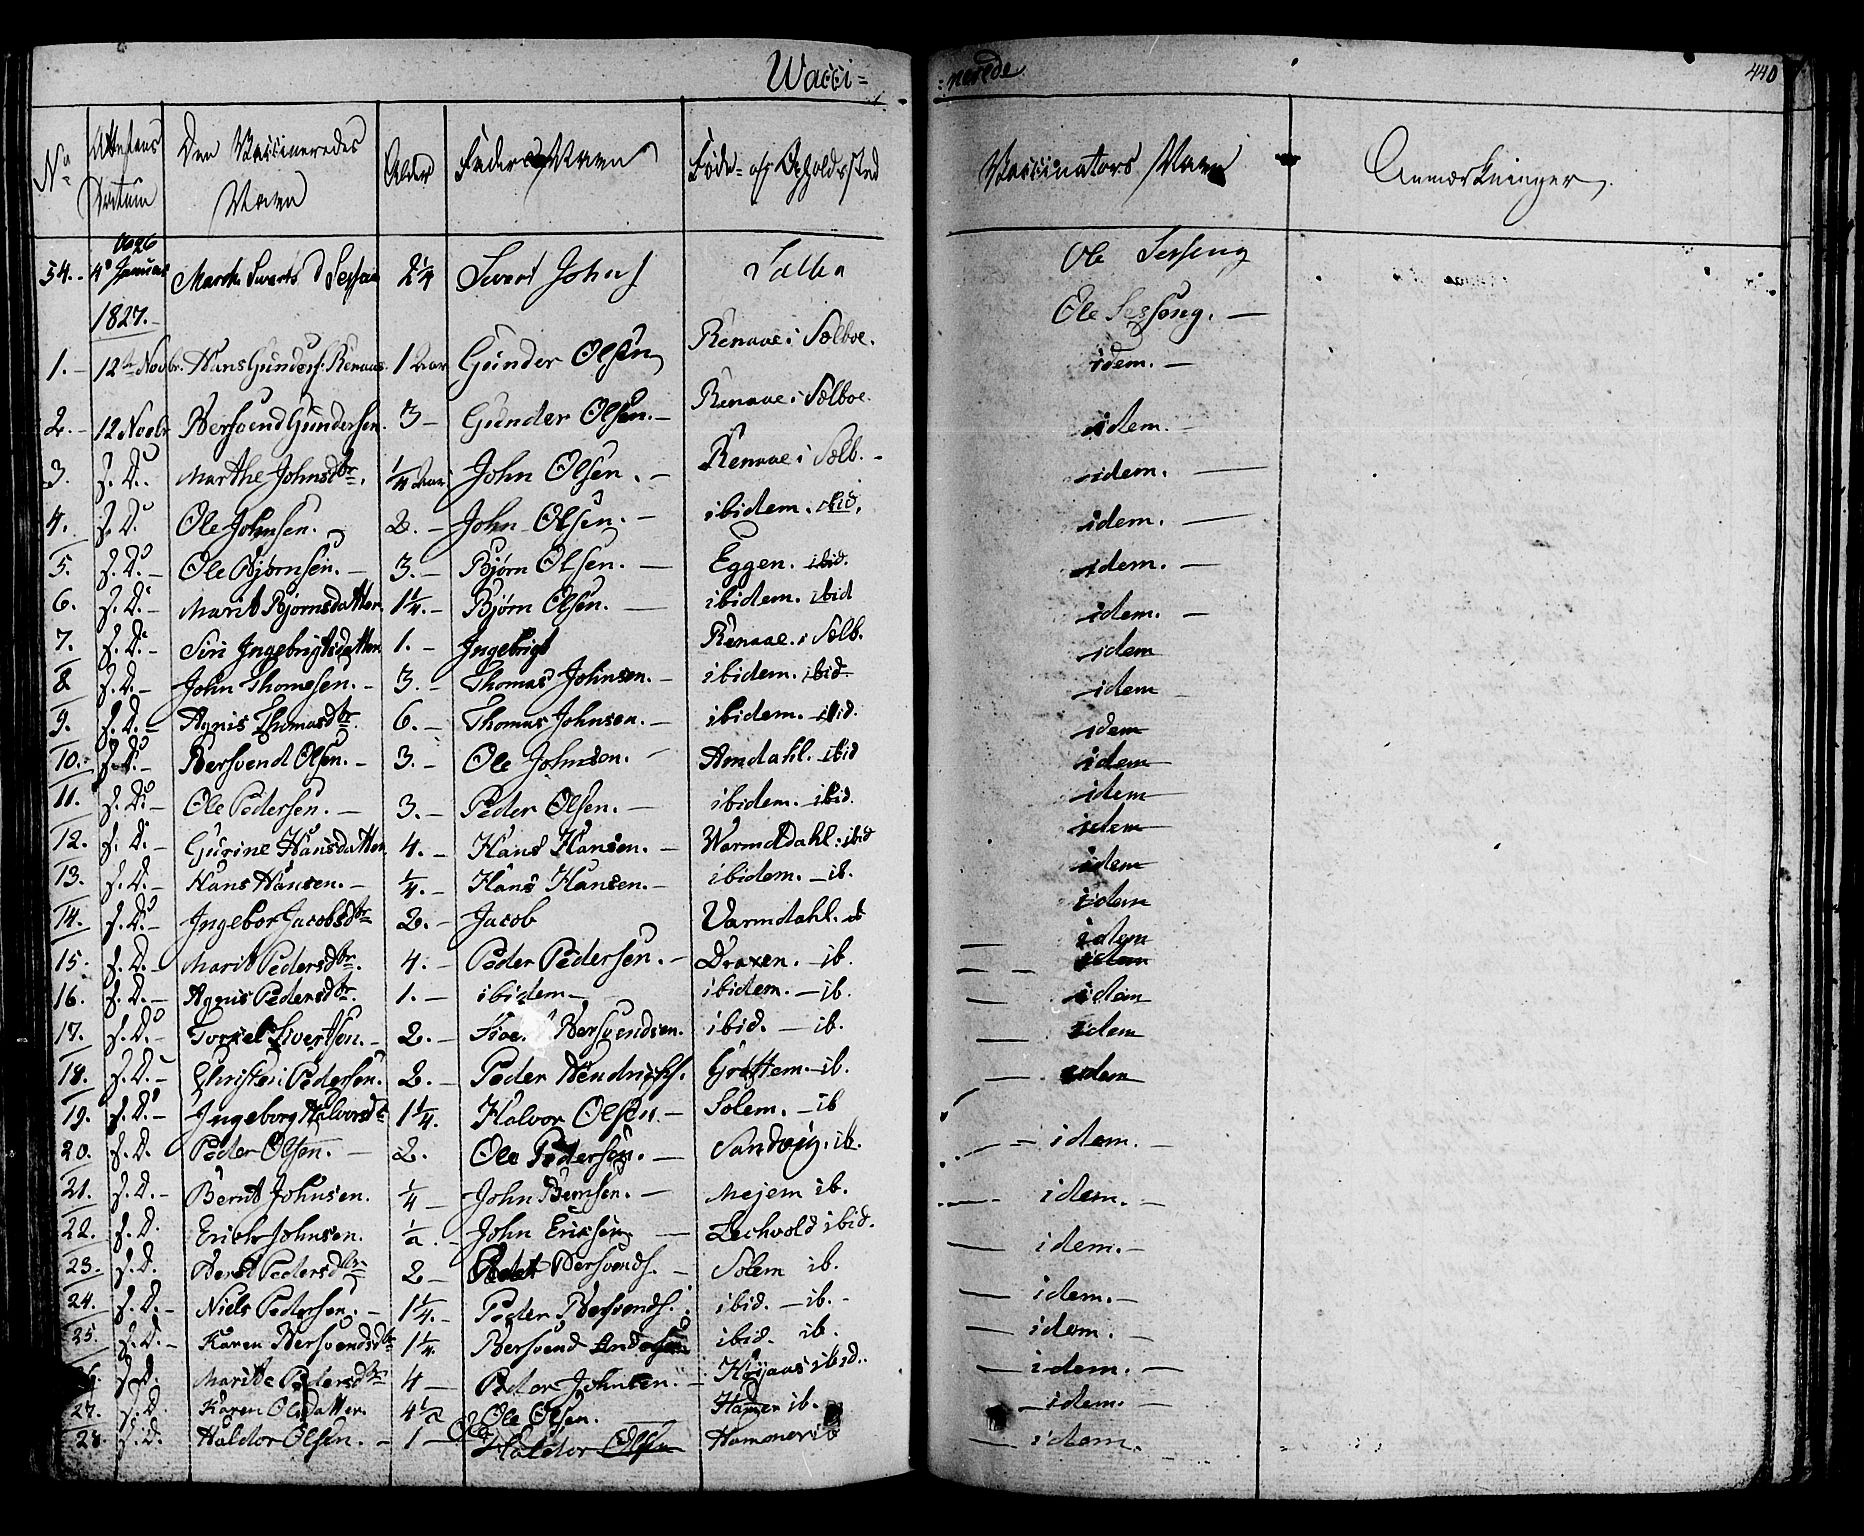 Wacci=
=nerede
440
No
Attestens Datum
Den Vaccineredes Navn
Alder
Faderens Navn
Føde- og Opholdssted
Vaccinators Navn
Anmærkninger
54. 4de Januar 1826 2 1/4 Sivert Johns Ole Sesseng
1827. Ole Sessong.
1. 12te Novbr. Hans Gunders. Renaae. 1 Aar Gunder Olsen Renaae i Sælboe. idem.
2. 12 Novbr Bersvend Gundersen. 3 Gunder Olsen. Renaae i Sælboe. idem.
3. s. D. Marthe Johnsdtr. 1/4 Aar John Olsen. Renaae i Sælb. idem.
4. s. D. Ole Johnsen. 2. John Olsen. ibidem. ibid. idem.
5. s. D. Ole Bjørnsen. 3. Bjørn Olsen. Eggen. ibid. idem.
6. s. D. Marit Bjørnsdatter 1 1/4. Bjørn Olsen. ibidem. ibid idem.
7. s. D. Siri Ingebrigtsdatter 1. Ingebrigt Renaae. i Sælb. idem
8. s. D. John Thomesen. 3. Thomas Johnsen. ibidem. ibid. idem
9. s. D. Agnis Thomasdtr. 6. Thomas Johnsen. ibidem. ibid. idem
10. s. D. Bersvend Olsen. 3. Ole Johnsen. Amdahl. ibid idem
11. s. D. Ole Pedersen. 3. Peder Olsen. ibidem. ibid. idem
12. s. D. Gurine Hansdatter 4. Hans Hansen. Warmdahl. ibid idem
13. s. D. Hans Hansen. 1/4. Hans Hansen. ibidem. ib. idem
14. s. D. Ingebor Jacobsdtr 2. Jacob Varmdahl. ib idem
15. s. D. Marit Pedersdtr. 4. Peder Pedersen. Draxen. ib. idem
idem
16. s. D. Agnis Pedersdtr. 1. ibidem ibidem. ib. idem
17. s. D. Sivertsen. 2. Bersvendsen. ibid. ib. idem
18. s. D. Pedersen. 2. Peder Hendrichs. Grøttem. ib. idem
19. s. D. Ingeborg Halvorsdtr 1 1/4. Halvor Olsen Solem. ib
20. s. D. Peder Olsen. 2. Ole Pedersen. Sandvig. ib. idem.
21. s. D. Bernt Johnsen. 1/4 John Bernsen. Mejem ib. idem.
22. s. D. Erich Johnsen. John Ericsen Lechvold ibid. idem.
23. s. D. Berit Pedersdtr 2 Bersvends. Solem ib.
24. s. D. Niels Pedersen. 1 1/4. Peder Bersvends. ibid. ib. idem.
25. s. D. Karen Bersvendsdtr 1 1/4 Bersvend ibid. ib. idem.
26. s. D. Marithe Pedersdtr 4 Peder Johnsen. ibid. idem.
27. s. D. Karen Olsdatter 4 1/2 Ole Olsen. Hammer ib. idem.
28. s. D. Haldor Olsen. 1 Ole Haldor Olsen Hammer ib idem.